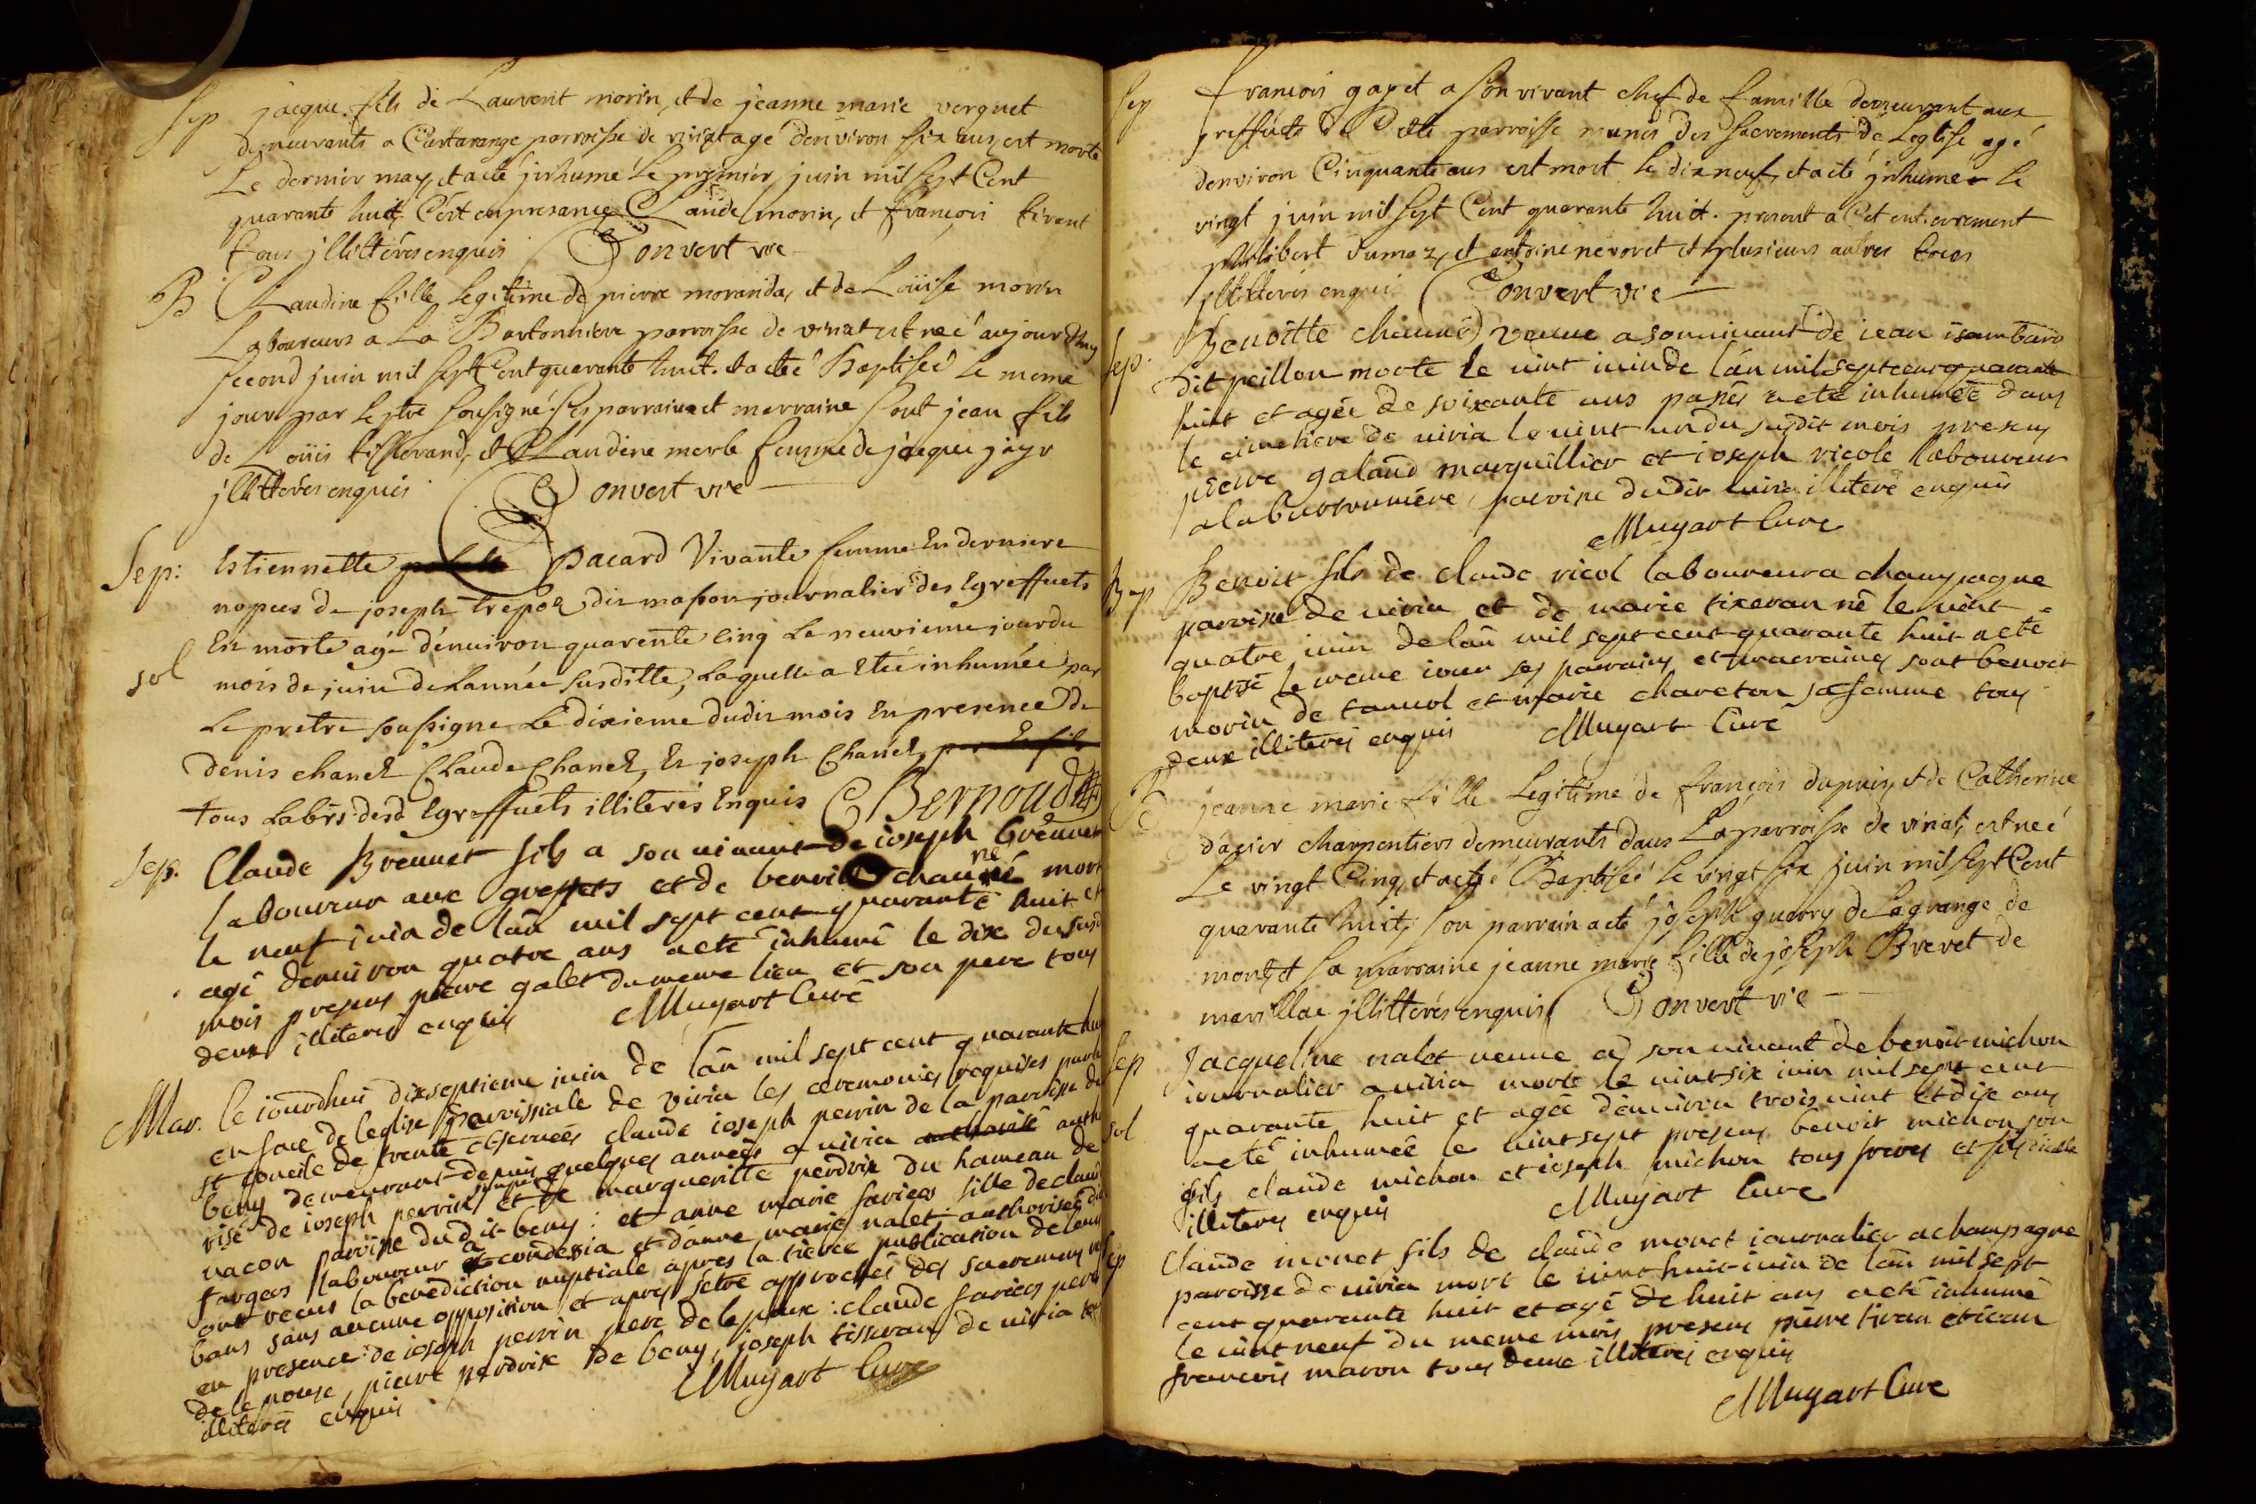 Sep jacque fils de Laurent morin, et de jeanne marie verguet
demeurants a Cartarange parroisse de viriat agé denviron six ans, est mort
Le dernier may, et a eté jnhumé Le premier juin mil sept Cent
quarante huit. C'est en presance Claude morin, et françois tirant
tous jllittérés enquis Convert vic
B Claudine fille Legitime de pierre moranda, et de Loüise morin
Laboureurs a La Bartonniere parroisse de viriat est neé aujourdhuy
second juin mil sept Cent quarante huit. et a eté Baptisée Le meme
jour par Le ptre soussigné. Ses parrain et marraine sont jean fils
de Loüis tisserand, et Claudine merle femme de jacque jayr
jllittérés enquis Convert vic
Sep: Estiennette Pacard Vivante femme En derniere
nopces de joseph trepoz dit masson journalier des Egreffuets
Est morte agé d'environ quarente cinq Le neuvieme jour du
sol mois de juin de Lannée susditte, Laquelle a Eté inhumée par
Le pretre soussigne Le dixieme dudit mois En presence de
denis chanel Claude Chanel, Et joseph Chanel
tous Labrs desd Egreffuets illiterés Enquis C Bernoud
Sep. Claude Brevnet fils a son vivant de ioseph brevnet
laboureur aux greffets et de benoitte chauné mort
le neuf iuin de lan mil sept cent quarante huit et
agé denviron quatre ans a eté inhumé le dix du susd
mois presens pierre galet du meme lieu et son pere tous
deux illiterés enquis Mugart Curé
Mar. le iourdhui dixseptieme iuin de lan mil sept cent quarante huit
en face de leglise parroissiale de viria les ceremonies requises par le
st concile de trente observées claude ioseph perrin de la parroisse de
beny demeurant depuis quelques années a viria auth
risé de ioseph perrin et de marguerite perdrix du hameau de
vacon paroisse dudit beny: et anne marie favier fille de claude
laboureur a condesia et danne marie nalet authorisée
ont recus la benediction nuptiale apres la tierce publication de leurs
bans sans aucune opposition et apres setre approchés des sacremens
en presence: de ioseph perrin pere de lepoux: claude favier pere
de lepouse, pierre perdrix de beny, ioseph tisseran de viria
illiterés enquis Mugart Cure
Sep françois gayet a son vivant chef de famille demeurant aux
greffuets de Dette parroisse munis des sacrements de Leglise agé
denviron Cinquante ans est mort Le dixneuf, et a eté jnhumé Le
vingt juin mil sept Cent quarante huit. present a Cet enterrement
philibert dumaz, et antoine nevoret et plusieurs autres tous
jllittérés enquis Convert vic
Sep. Benoitte chauné veuve a son vivant de iean isambard
dit peillou morte le vint iuin de lan mil sept cent quarante
huit et agée de soixante ans passés a eté inhumée dans
le cimetiere de viria le vint un du susdit mois presens
pierre galand marguillier et ioseph ricole laboureur
a la bertonniere paroisse dudit viria illiteré enquis
Mugart Cure
Bap Benoit fils de claude ricol laboureur a champagne
paroisse de viria et de marie tixeran né le vint
quatre iuin de lan mil sept cent quarante huit a eté
baptisé le meme iour ses parrains et marraines sont benoit
morin de tanvol et marie chareton sa femme tous
deux illiteres enquis Mugart Curé
B jeanne marie fille Legitime de françois dupuis, et de Catherine
dacier charpentiers demeurants dans La parroisse de viriat, est neé
Le vingt Cinq, et a eté Baptisée Le vingt six juin mil sept Cent
quarante huit, son parrain a eté joseph guerry de Lagrange de
mont, et sa marraine jeanne marie fille de joseph Brevet de
marillac jllittérés enquis Convert vic
Sep Jacqueline nalet veuve a son vivant de benoit michon
iournalier a viria morte le vint six iuin mil sept cent
quarante huit et agée denviron trois vint et dix ans
sol a eté inhumée le vint sept presens benoit michon son
fils claude michon et ioseph michon tous freres et
illiteres enquis Mugart Cure
Sep Claude monet fils de claude monet iournalier a champagne
paroisse de viria mort le vint huit iuin de lan mil sept
cent quarante huit et agé de huit ans a eté inhumé
le vint neuf du meme mois presens pierre tiran et iean
francois maron tous deux illiteres enquis
Mugart Cure